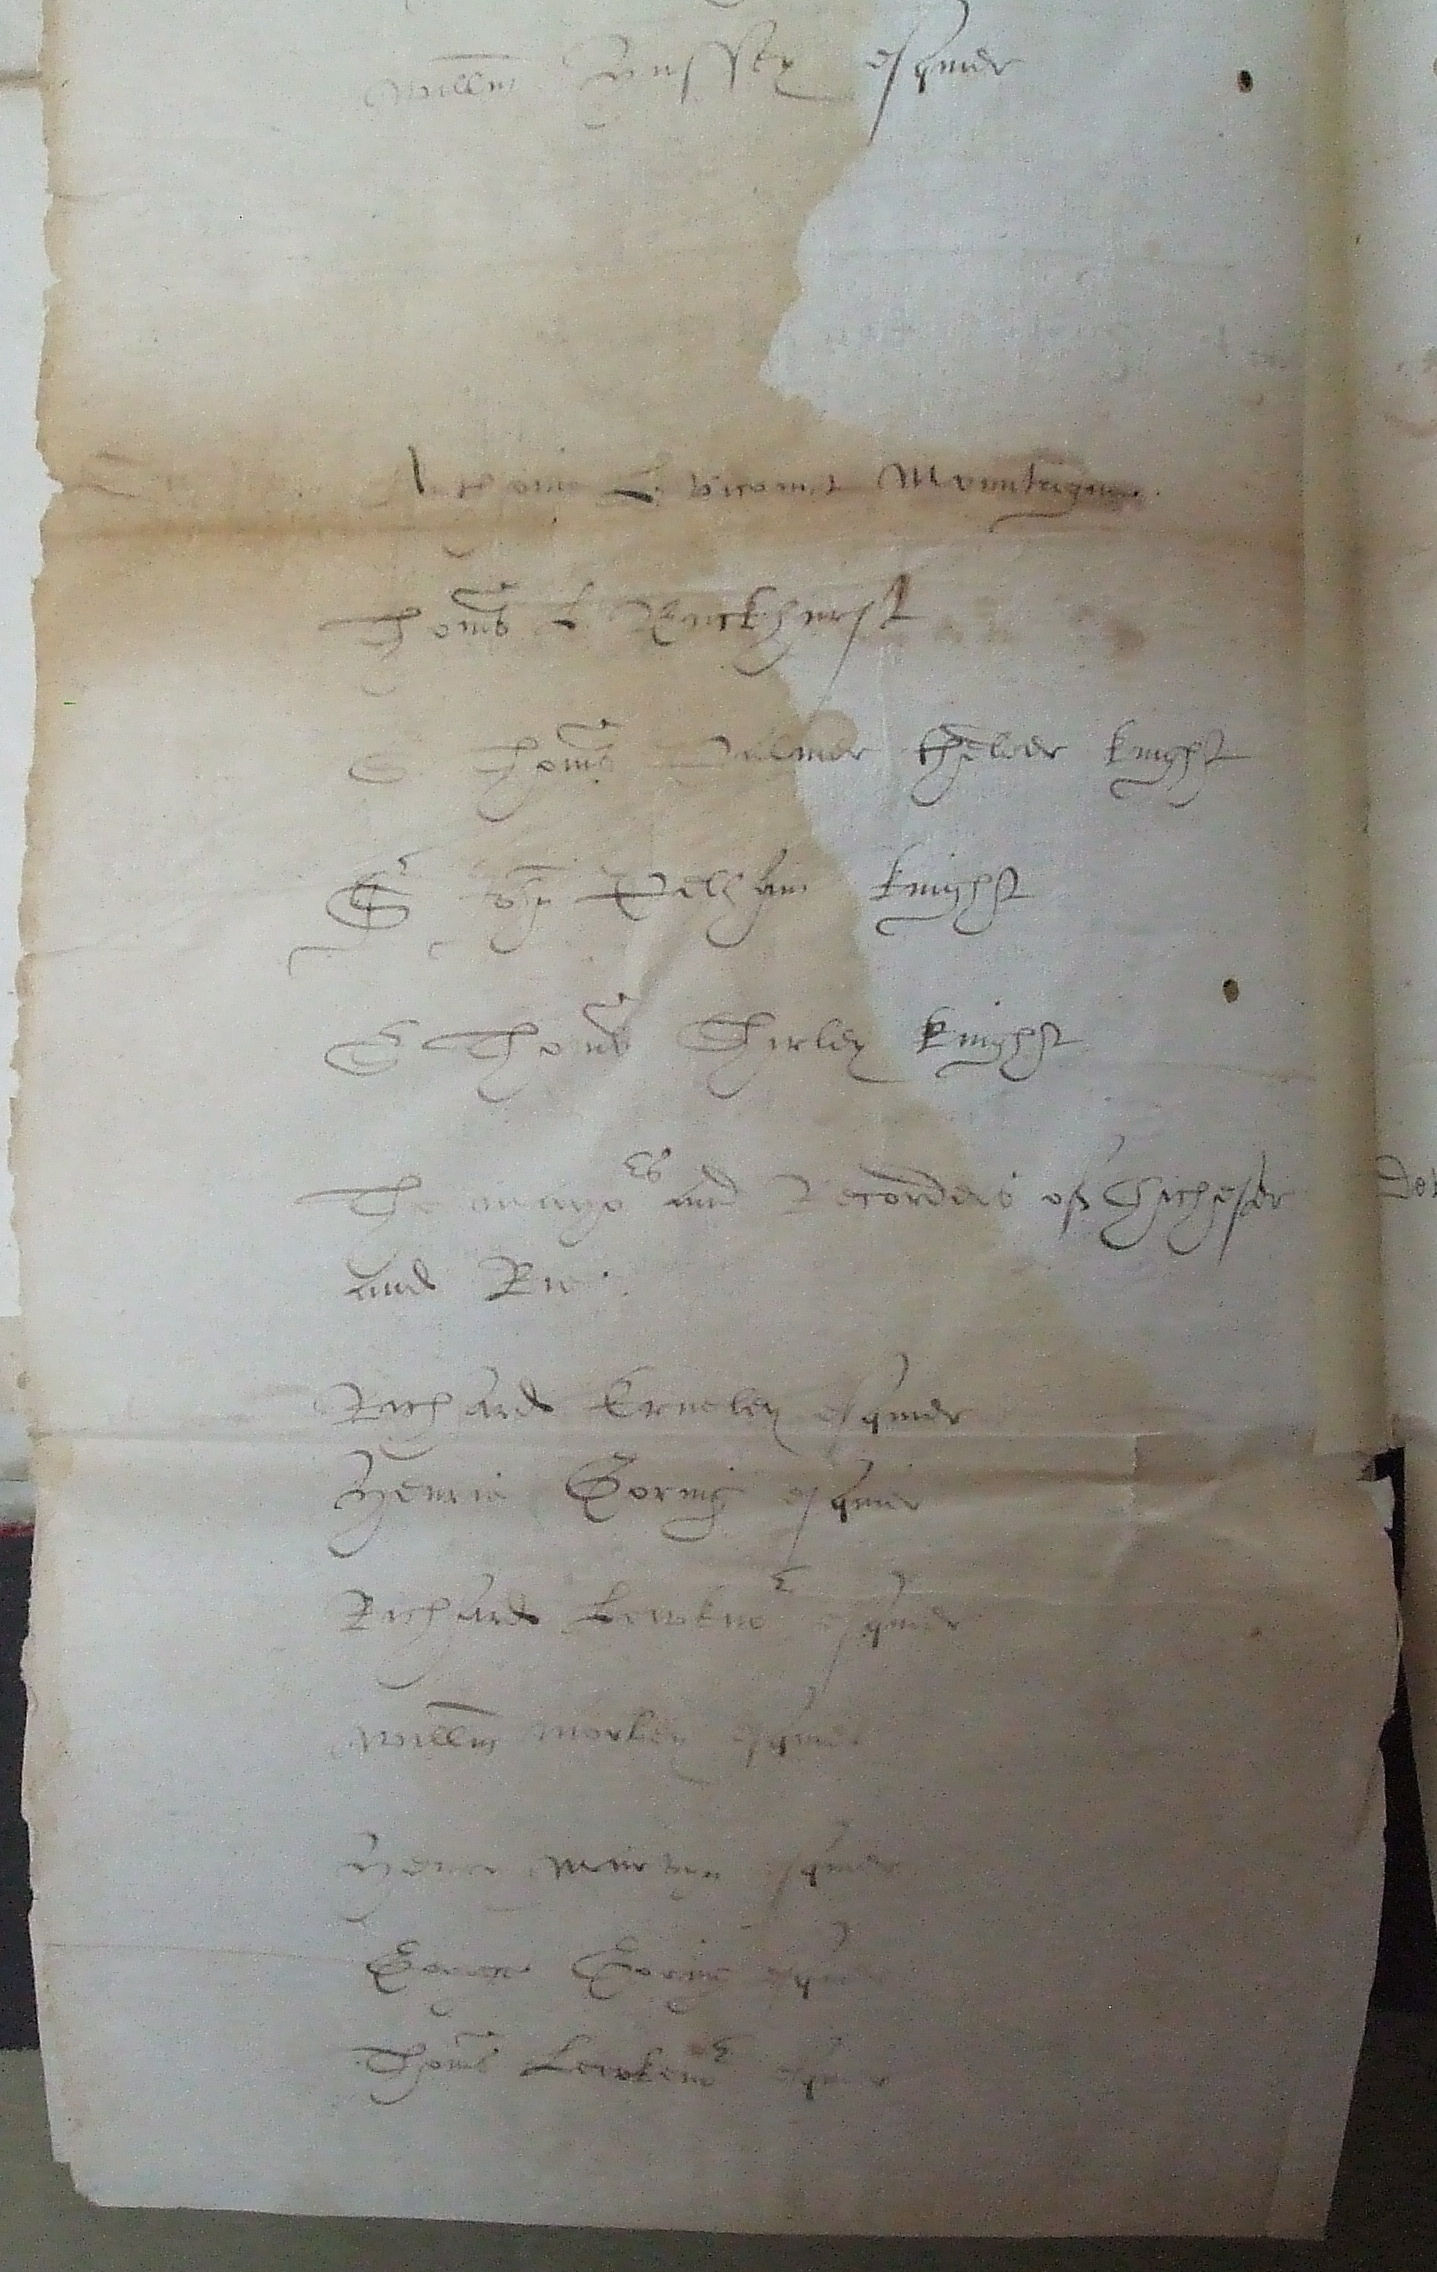 Willm Hussey esquier
Anthonie L. vicomt Mountague.
Thoms L Buckhurst
S Thoms Palmer thelder knight
Sr Ihn Pelham knight
S Thoms Shirley knight
The mayors and Recorders of Chichester
and Rie.
Richard Erneley esquier
Henrie Goring esquier
Richard Lewknor esquier
Willm Morley esquier
Henry esquier
George Goring esquier
Thoms Lewkenor esquier